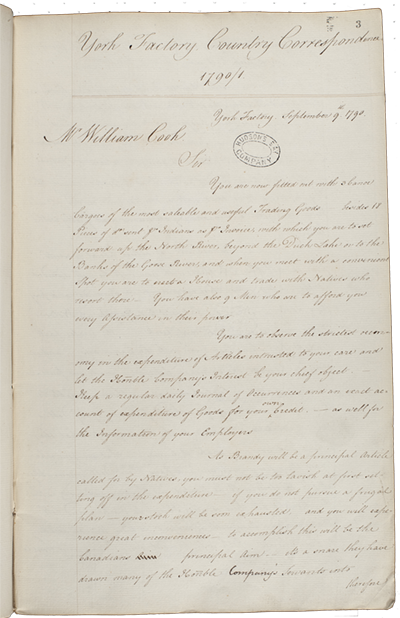 3
York Factory Country Correspondence
1790/1
York Factory September 9th 1790
HUDSON'S BAY
COMPANY
Mr William Cook
Sir
You are now fitted out with
of the most saleable and useful Trading Goods 18
Pieces of do sent
forward up the North River beyond the Duck Lake or to the
Banks of the Goose River, and when you meet with a convenient
Spot you are to a House and trade with Natives who
resort there — You have also 9 Men who are to afford you
every Assistance in their power
You are to observe the strictest œcono-
my in the expenditure of Articles intrusted to your care and
let the Honble Company's Interest be your chief object —
Keep a regular daily Journal of Occurrences and an exact ac-
count of expenditure of Goods for your own Credit. — as well for
the Information of your Employers
As Brandy will be a principal Article
called for by Natives, you must not be too lavish at first set-
ting off in the expenditure — if you do not pursue a frugal
plan — your stock will be soon exhausted, and you will expe-
rience great inconvenience — to accomplish this will be the
Canadians principal aim — its a snare they have
drawn many of the Honble Company's Servants into
therefore